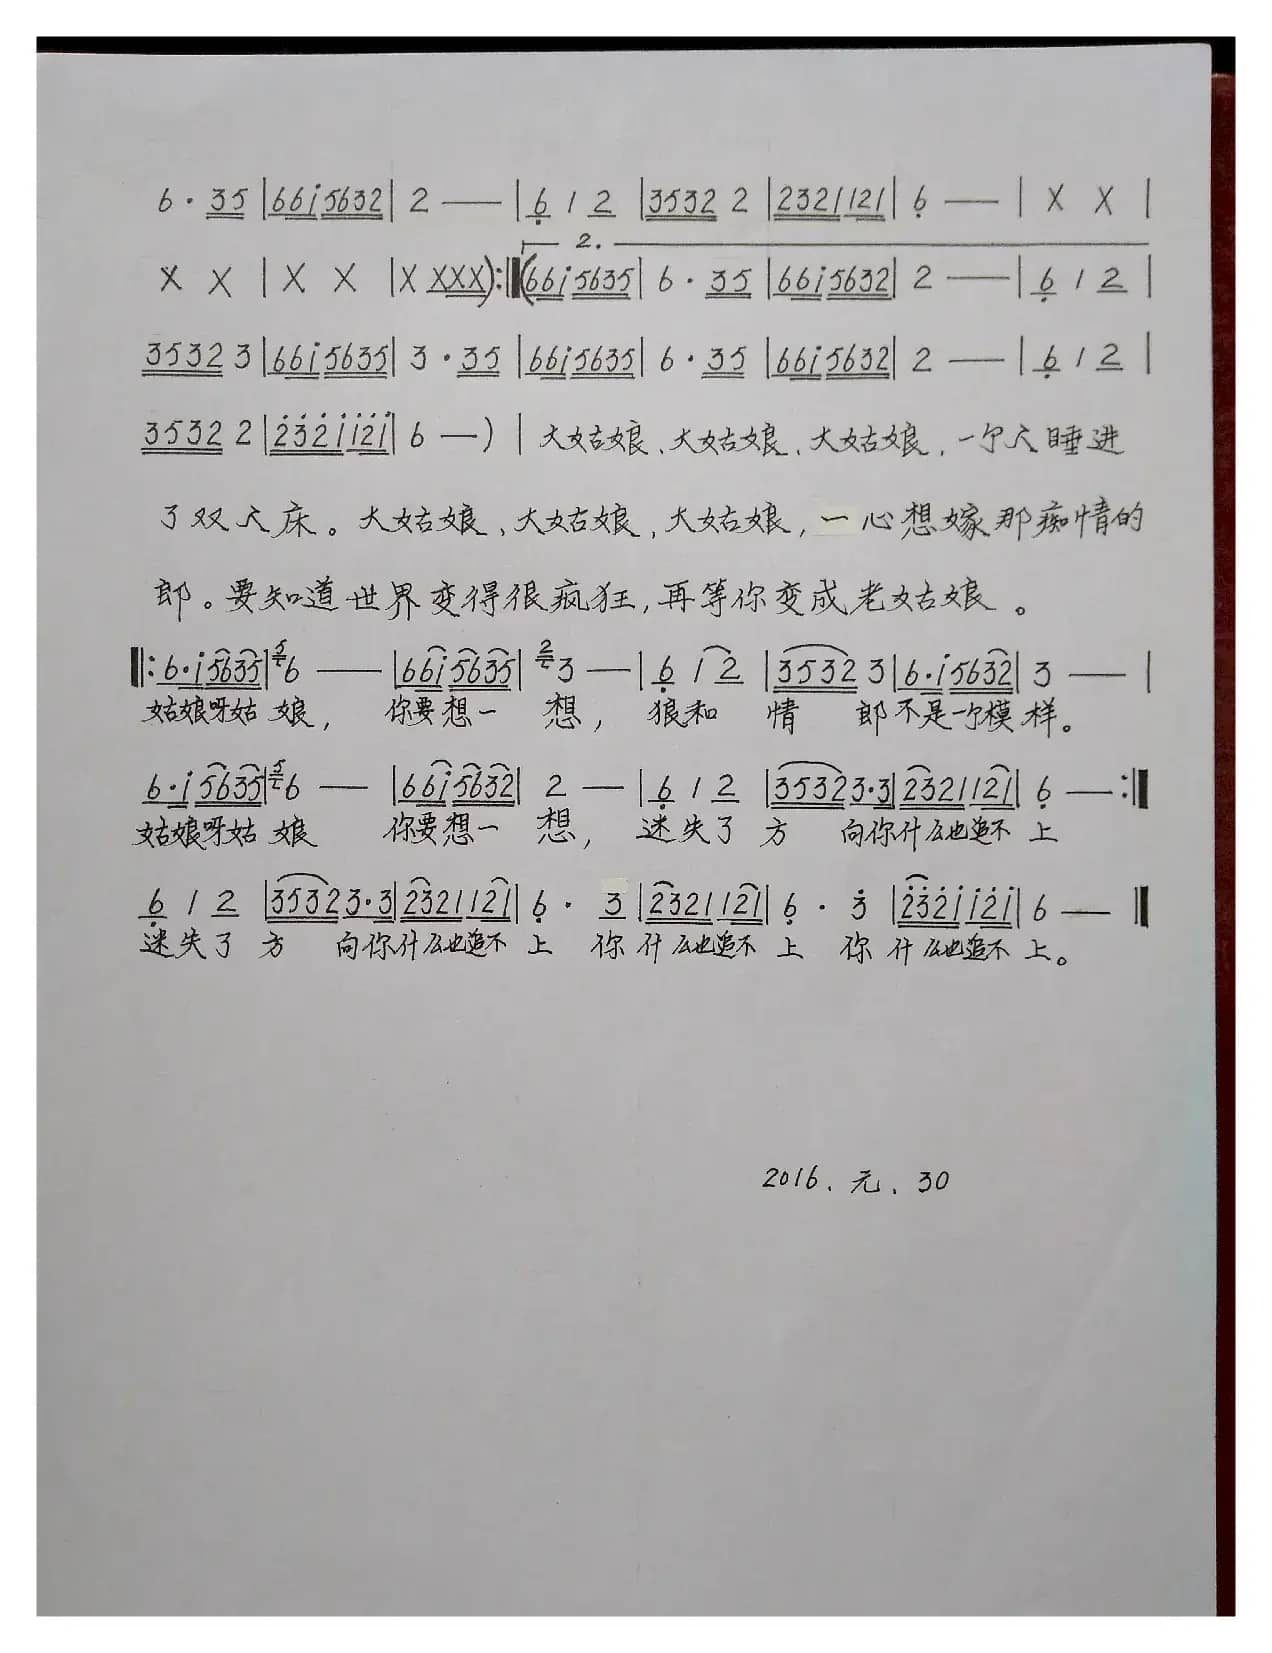 6 · 35 | 66i 5632 | 2 — | 6 1 2 | 3532 2 | 2321 121 | 6 — | X X |
2.
X X | X X | X XXX ) :‖ ( 66i 5635 | 6 · 35 | 66i 5632 | 2 — | 6 1 2 |
3532 3 | 66i 5635 | 3 · 35 | 66i 5635 | 6 · 35 | 66i 5632 | 2 — | 6 1 2 |
3532 2 | 2321 121 | 6 — ) | 大姑娘、大姑娘、大姑娘，一个人睡进
了双人床。大姑娘、大姑娘，大姑娘，一心想嫁那痴情的
郎。要知道世界变得很疯狂，再等你变成老姑娘。
‖: 6·i 5635 | 5 6 — | 66i 5635 | 2 3 — | 6 1 2 | 3532 3 | 6·i 5632 | 3 — |
姑娘呀姑 娘， 你要想一 想，狼和 情 郎不是一个模样。
6·i 5635 | 5 6 — | 66i 5632 | 2 — | 6 1 2 | 3532 3·3 | 2321 121 | 6 — :‖
姑娘呀姑 娘 你要想一 想，迷失了 方 向你什么也追不 上
6 1 2 | 3532 3·3 | 2321 121 | 6 · 3 | 2321 121 | 6 · 3 | 2321 121 | 6 — ‖
迷失了 方 向你什么也追不 上 你 什么也追不 上 你 什么也追不 上。
2016、元、30